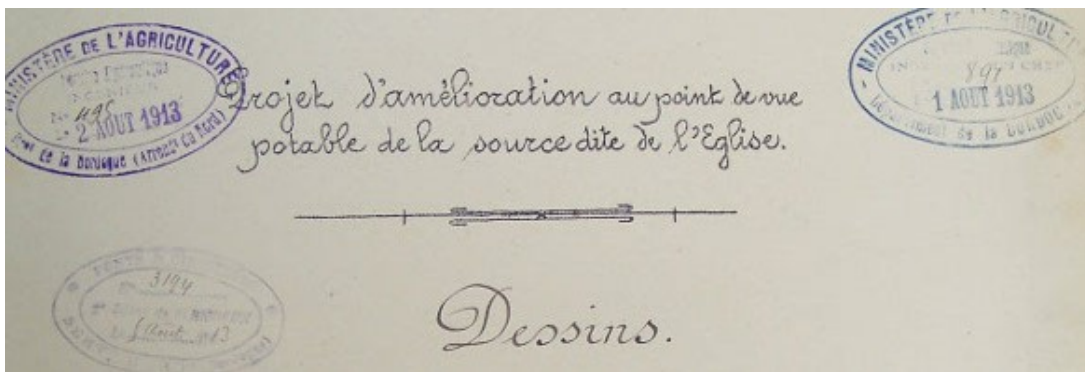 MINISTÈRE DE L'AGRICULTURE
495
2 AOUT 1913
de la Dordogne (Arrondt du Nord)
MINISTÈRE DE L'AGRICULTURE
891
1 AOUT 1913
Département de la DORDOGNE
Projet d'amélioration au point de vue
potable de la source dite de l'Eglise.
3194
Dessins.